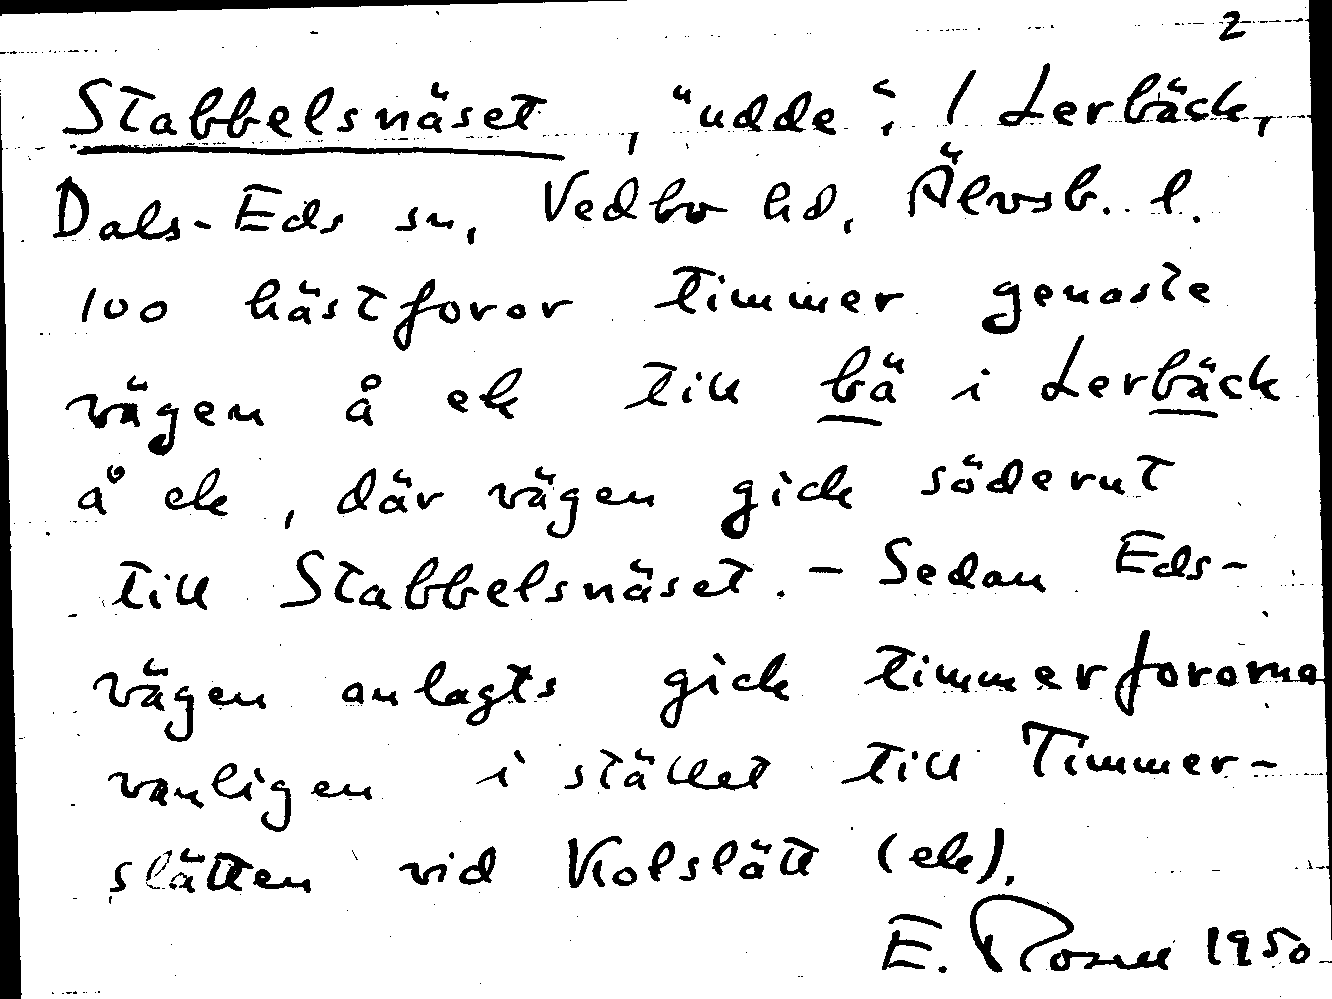 2
Stabbelsnäset, "udde". / Lerbäck,
Dals-Eds sn, Vedbo hd, Älvsb. l.
100 hästforor timmer genaste
vägen å ek till bä i Lerbäck
å ek, där vägen gick söderut
till Stabbelsnäset. - Sedan Eds-
vägen anlagts gick timmerfororna
vanligen i stället till Timmer-
slätten vid Kolslätt (ek).
E. Rosell 1950